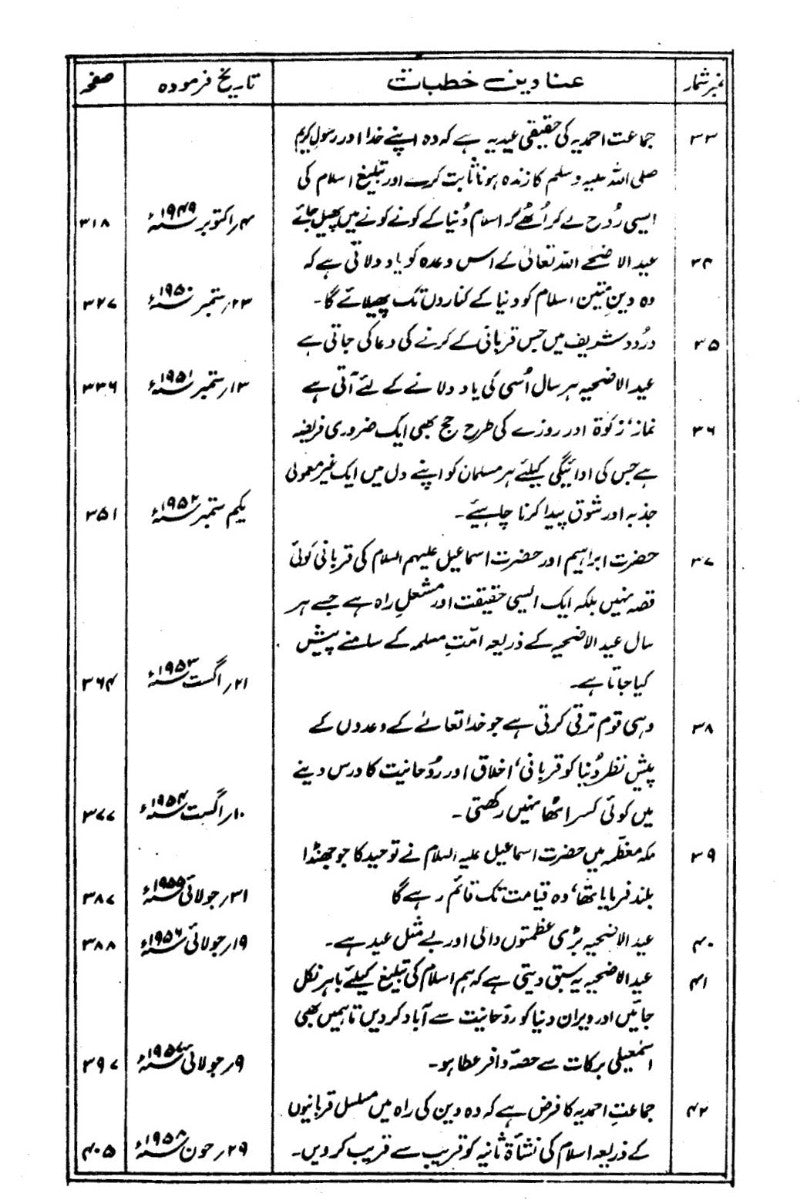 نمبر شمار عناوین خطبات تاریخ فرمودہ صفحہ
۳۳ جماعت احمدیہ کی حقیقی عید یہ ہے کہ وہ اپنے خدا اور رسولِ کریم
صلی اللہ علیہ وسلم کا زندہ ہونا ثابت کرے اور تبلیغ اسلام کی
ایسی رُوح لے کر اُٹھے کہ اسلام دُنیا کے کونے کونے میں پھیل جائے ۴؍اکتوبر ۱۹۴۹ء ۳۱۸
۳۴ عید الاضحےٰ اللہ تعالیٰ کے اس وعدہ کو یاد دلاتی ہے کہ
وہ دینِ متین اسلام کو دنیا کے کناروں تک پھیلائے گا۔ ۲۳؍ستمبر ۱۹۵۰ء ۳۲۷
۳۵ درُود شریف میں جس قربانی کے کرنے کی دعا کی جاتی ہے
عید الاضحیہ ہر سال اُسی کی یاد دلانے کے لئے آتی ہے ۱۳؍ستمبر ۱۹۵۱ء ۳۳۶
۳۶ نماز، زکوٰۃ اور روزے کی طرح حج بھی ایک ضروری فریضہ
ہے جس کی ادائیگی کیلئے ہر مسلمان کو اپنے دل میں ایک غیر معمولی
جذبہ اور شوق پیدا کرنا چاہیئے۔ یکم ستمبر ۱۹۵۲ء ۳۵۱
۳۷ حضرت ابراہیم اور حضرت اسماعیل علیہم السلام کی قربانی کوئی
قصہ نہیں بلکہ ایک ایسی حقیقت اور مشعلِ راہ ہے جسے ہر
سال عید الاضحیہ کے ذریعہ امتِ مسلمہ کے سامنے پیش
کیا جاتا ہے۔ ۲۱؍اگست ۱۹۵۳ء ۳۶۴
۳۸ وہی قوم ترقی کرتی ہے جو خدا تعالےٰ کے وعدوں کے
پیش نظر دُنیا کو قربانی، اخلاق اور رُوحانیت کا درس دینے
میں کوئی کسر اٹھا نہیں رکھتی۔ ۱۰؍اگست ۱۹۵۴ء ۳۷۷
۳۹ مکہ معظّمہ میں حضرت اسماعیل علیہ السلام نے توحید کا جو جھنڈا
بلند فرمایا تھا، وہ قیامت تک قائم رہے گا ۳۱؍جولائی ۱۹۵۵ء ۳۸۷
۴۰ عید الاضحیہ بڑی عظمتوں والی اور بے مثل عید ہے۔ ۱۹؍جولائی ۱۹۵۶ء ۳۸۸
۴۱ عید الاضحیہ یہ سبق دیتی ہے کہ ہم اسلام کی تبلیغ کیلئے باہر نکل
جائیں اور ویران دنیا کو روحانیت سے آباد کر دیں تا ہمیں بھی
اسمٰعیلی برکات سے حصّہ وافر عطا ہو۔ ۹؍جولائی ۱۹۵۷ء ۳۹۷
۴۲ جماعتِ احمدیہ کا فرض ہے کہ وہ دین کی راہ میں مسلسل قربانیوں
کے ذریعہ اسلام کی نشأۃ ثانیہ کو قریب سے قریب کر دیں۔ ۲۹؍جون ۱۹۵۸ء ۴۰۵